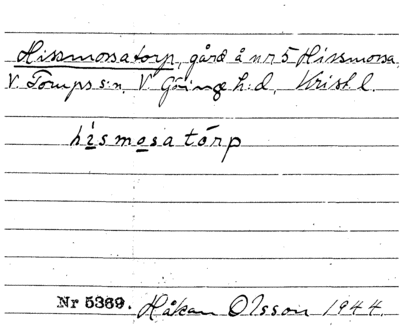 Hissmossatorp, gård å nr 5 Hissmossa,
V. Torups s:n, V. Göinge h:d, Krist. l.
hismosatórp
Nr 5369. Håkan Olsson 1944.